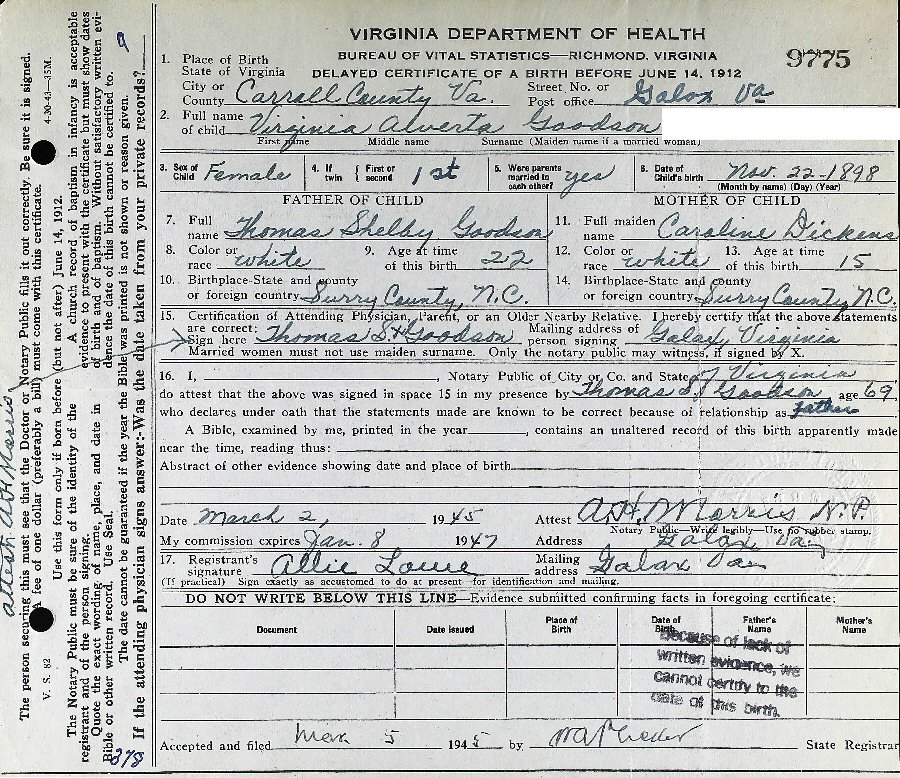 VIRGINIA DEPARTMENT OF HEALTH
BUREAU OF VITAL STATISTICS—RICHMOND, VIRGINIA
9775
DELAYED CERTIFICATE OF A BIRTH BEFORE JUNE 14, 1912
1. Place of Birth
State of Virginia
City or County Carroll County Va. Street No. or Post office Galax Va
2. Full name of child Virginia Alverta Goodson
First name Middle name Surname (Maiden name if a married woman)
3. Sex of Child Female 4. If twin First or second 1st 5. Were parents married to each other? yes 6. Date of Child's birth Nov. 22-1898
(Month by name) (Day) (Year)
FATHER OF CHILD MOTHER OF CHILD
7. Full name Thomas Shelby Goodson 11. Full maiden name Caroline Dickens
8. Color or race white 9. Age at time of this birth 22 12. Color or race white 13. Age at time of this birth 15
10. Birthplace-State and county or foreign country Surry County, N.C. 14. Birthplace-State and county or foreign country Surry County N.C.
15. Certification of Attending Physician, Parent, or an Older Nearby Relative. I hereby certify that the above statements
are correct:
Sign here Thomas S. Goodson Mailing address of person signing Galax, Virginia
Married women must not use maiden surname. Only the notary public may witness, if signed by X.
16. I, , Notary Public of City or Co. and State of Virginia
do attest that the above was signed in space 15 in my presence by Thomas S. Goodson age 69,
who declares under oath that the statements made are known to be correct because of relationship as father
A Bible, examined by me, printed in the year , contains an unaltered record of this birth apparently made
near the time, reading thus:
Abstract of other evidence showing date and place of birth
Date March 2, 1945 Attest A.H. Morris N.P.
Notary Public—Write legibly—Use no rubber stamp.
My commission expires Jan. 8 1947 Address Galax Va
17. Registrant's signature Allie Lowe Mailing address Galax Va
(If practical) Sign exactly as accustomed to do at present for identification and mailing.
DO NOT WRITE BELOW THIS LINE—Evidence submitted confirming facts in foregoing certificate:
Document Date Issued Place of Birth Date of Birth Father's Name Mother's Name
Because of lack of
written evidence, we
cannot certify to the
date of this birth.
Accepted and filed Mar 5 1945 by State Registrar
The person securing this must see that the Doctor or Notary Public fills it out correctly. Be sure it is signed.
A fee of one dollar (preferably a bill) must come with this certificate.
V. S. 82 4-30-43—15M.
Use this form only if born before (but not after) June 14, 1912.
The Notary Public must be sure of the identity of the
registrant and of the person signing.
Quote the exact wording of name, place, and date in
Bible or other written record. Use Seal.
A church record of baptism in infancy is acceptable
evidence to present with the certificate but must show dates
of birth and of baptism. Without satisfactory written evi-
dence the date of this birth cannot be certified to.
The date cannot be guaranteed if the year the Bible was printed is not shown or reason given.
If the attending physician signs answer:-Was the date taken from your private records?
9
378
attest A H Morris